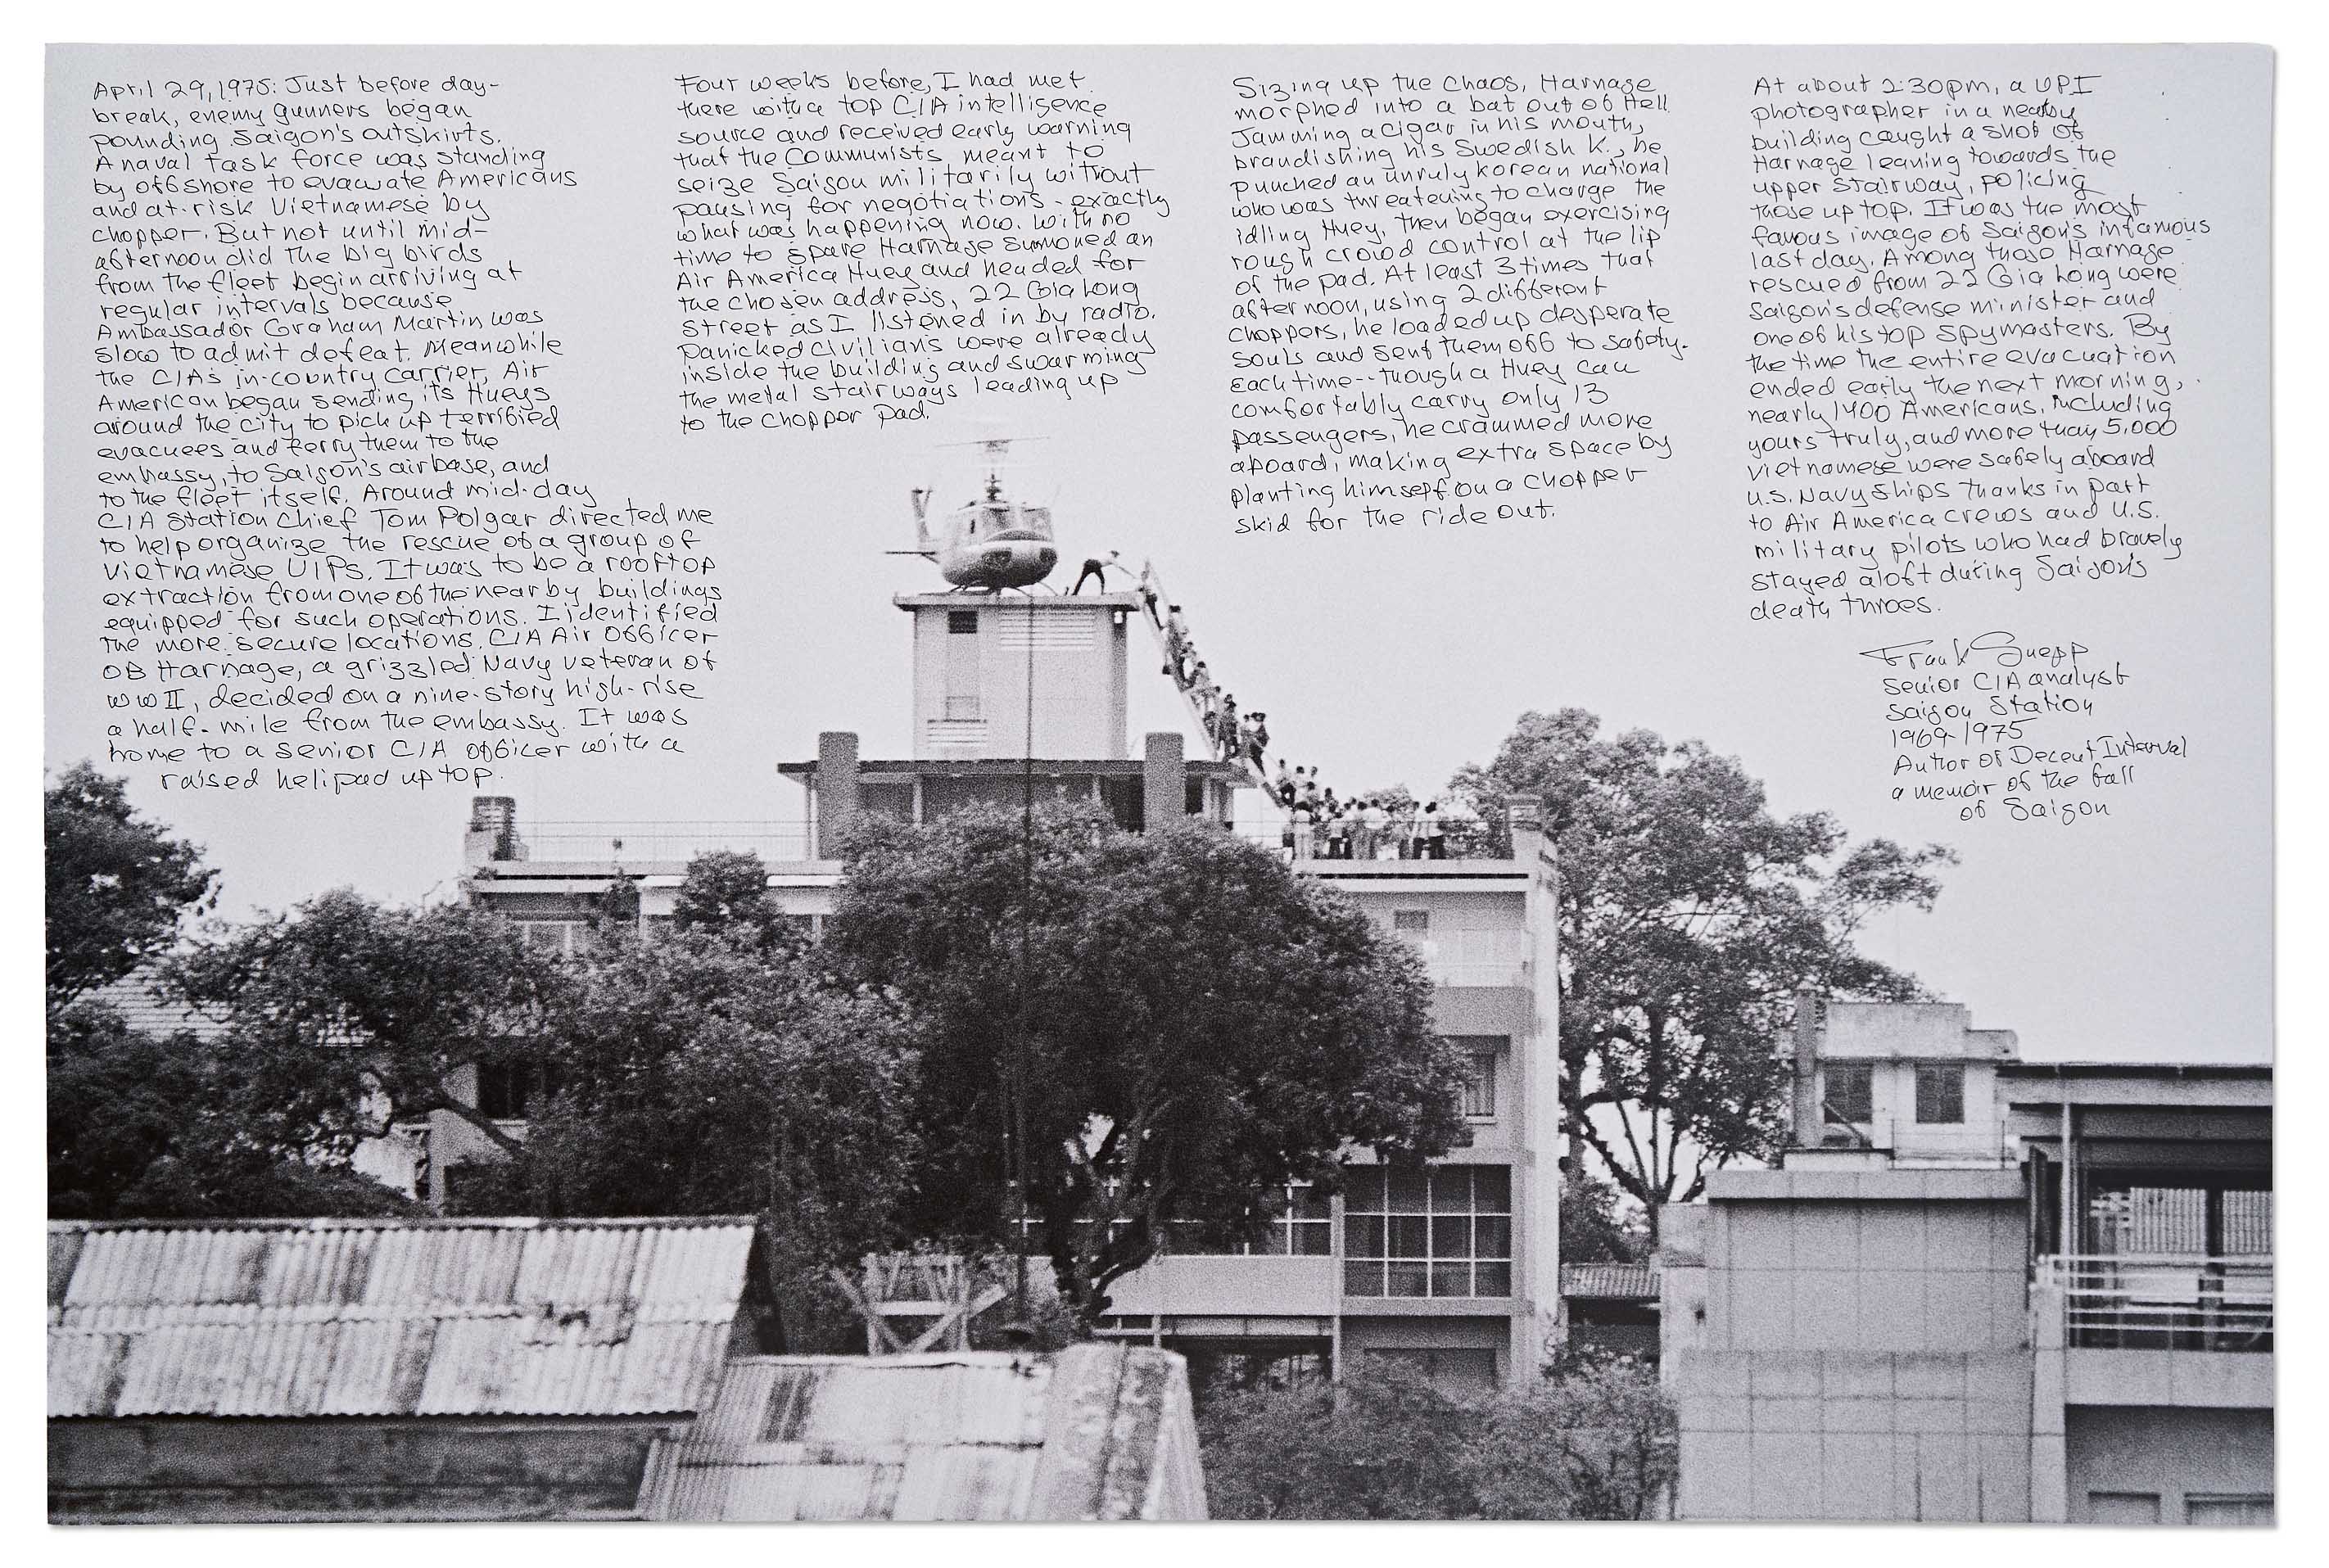 April 29, 1975: Just before day-
break, enemy gunners began
pounding Saigon's outskirts.
A naval task force was standing
by offshore to evacuate Americans
and at-risk Vietnamese by
chopper. But not until mid-
afternoon did the big birds
from the fleet begin arriving at
regular intervals because
Ambassador Graham Martin was
slow to admit defeat. Meanwhile
the CIA's in-country carrier, Air
American began sending its Hueys
around the city to pick up terrified
evacuees and ferry them to the
embassy, to Saigon's airbase, and
to the fleet itself. Around mid-day
CIA Station Chief Tom Polgar directed me
to help organize the rescue of a group of
Vietnamese VIPs. It was to be a rooftop
extraction from one of the nearby buildings
equipped for such operations. I identified
the more secure locations. CIA Air Officer
OB Harnage, a grizzled Navy veteran of
WWII, decided on a nine-story high-rise
a half-mile from the embassy. It was
home to a senior CIA officer with a
raised helipad up top.
Four weeks before, I had met
there with a top CIA intelligence
source and received early warning
that the Communists meant to
seize Saigon militarily without
pausing for negotiations - exactly
what was happening now. With no
time to spare Harnage summoned an
Air America Huey and headed for
the chosen address, 22 Gia Long
Street as I listened in by radio.
Panicked civilians were already
inside the building and swarming
the metal stairways leading up
to the chopper pad.
Sizing up the chaos, Harnage
morphed into a bat out of Hell.
Jamming a cigar in his mouth,
brandishing his Swedish K., he
punched an unruly Korean national
who was threatening to charge the
idling Huey, then began exercising
rough crowd control at the lip
of the pad. At least 3 times that
afternoon, using 2 different
choppers, he loaded up desperate
souls and sent them off to safety.
Each time -- though a Huey can
comfortably carry only 13
passengers, he crammed more
aboard, making extra space by
planting himself on a chopper
skid for the ride out.
At about 2:30pm, a UPI
photographer in a nearby
building caught a shot of
Harnage leaning towards the
upper stairway, policing
those up top. It was the most
famous image of Saigon's infamous
last day. Among those Harnage
rescued from 22 Gia Long were
Saigon's defense minister and
one of his top spymasters. By
the time the entire evacuation
ended early the next morning,
nearly 1400 Americans, including
yours truly, and more than 5,000
Vietnamese were safely aboard
U.S. Navy ships thanks in part
to Air America crews and U.S.
military pilots who had bravely
stayed aloft during Saigon's
death throes.
Frank Snepp
Senior CIA analyst
Saigon Station
1969-1975
Author of Decent Interval
a memoir of the fall
of Saigon